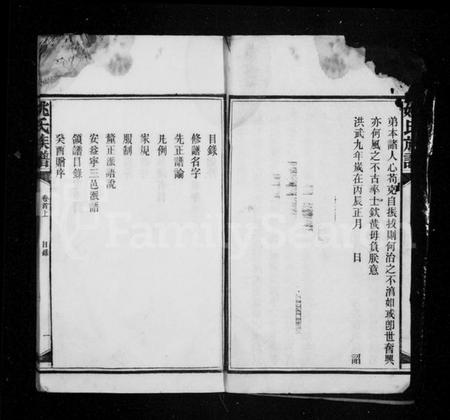 弟本諸人心苟克自振拔則何治之不滷如或卽世奮興
亦何風之不古率士欽哉毋負朕意
洪武九年歲在丙辰正月 日 詔
目錄
修譜名字
先正譜論
凡例
家規
服制
釐正派語說
安益寧三邑派語
領譜目錄
癸酉贈序
姚氏族譜
卷首上
目錄
一
FamilySearch